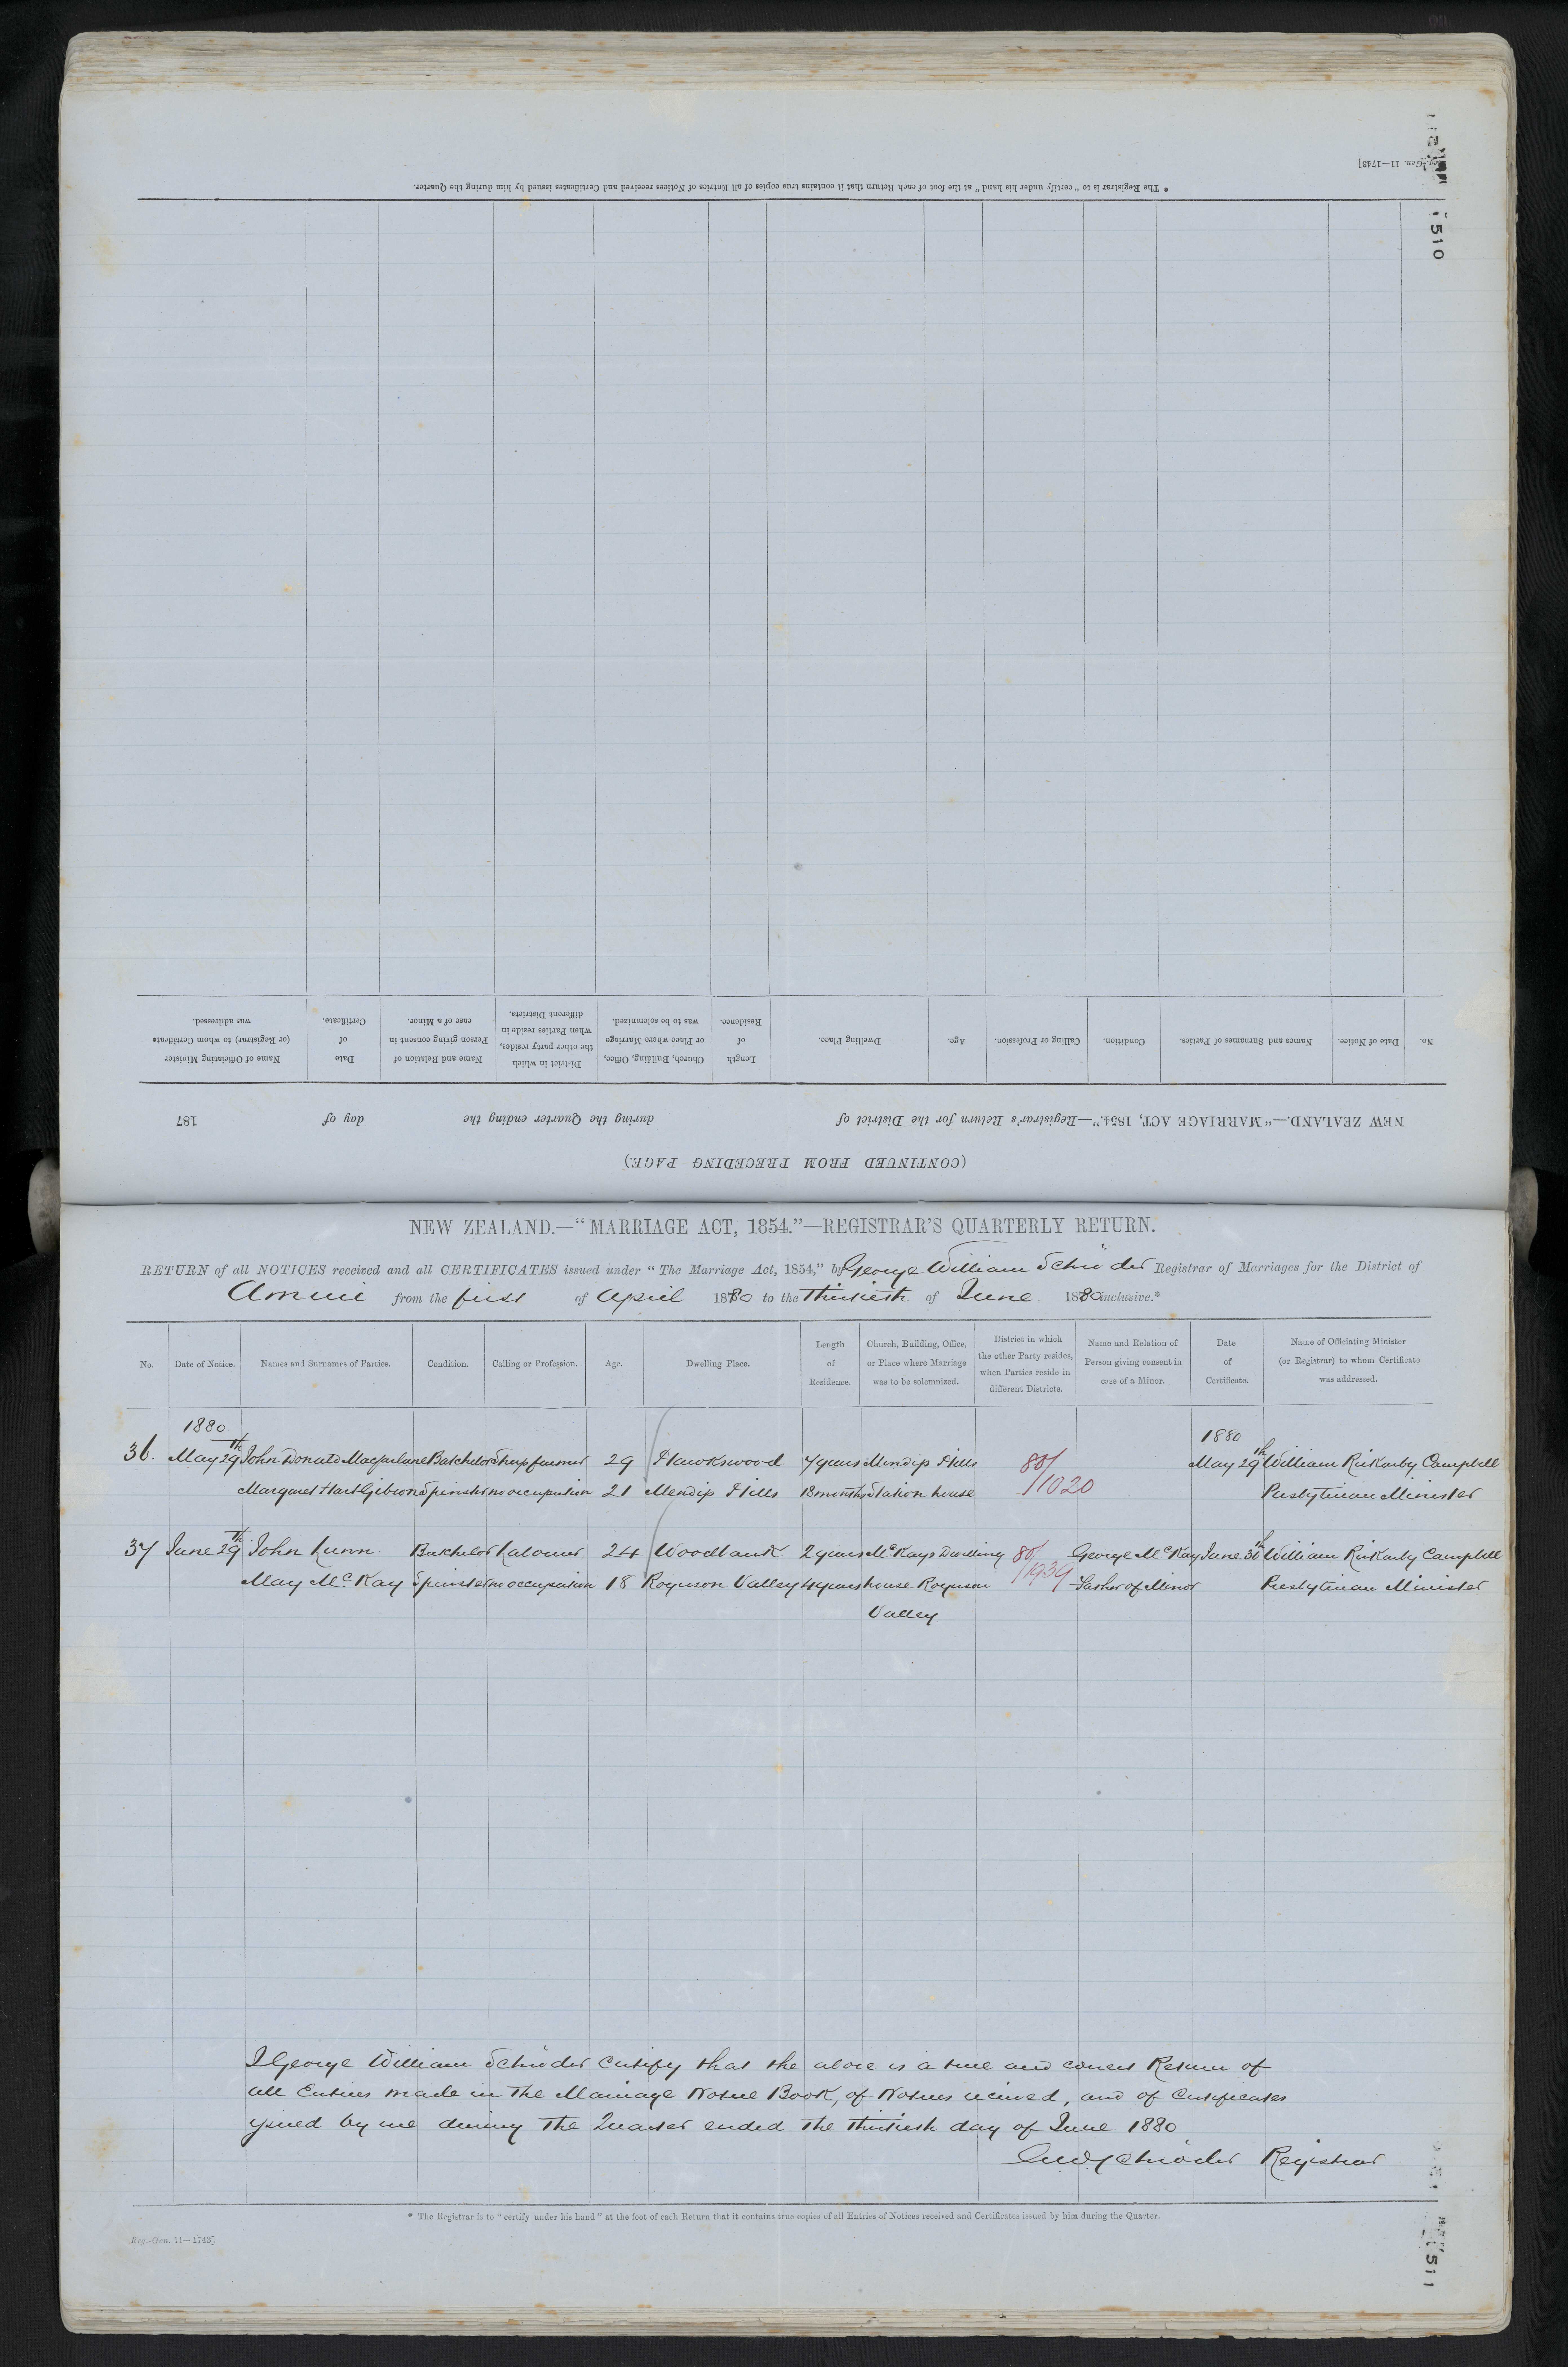 Reg.-Gen. 11—1743]
510
* The Registrar is to "certify under his hand" at the foot of each Return that it contains true copies of all Entries of Notices received and Certificates issued by him during the Quarter.
(CONTINUED FROM PRECEDING PAGE.)
NEW ZEALAND.—"MARRIAGE ACT, 1854."—Registrar's Return for the District of during the Quarter ending the day of 187
No. Date of Notice. Names and Surnames of Parties. Condition. Calling or Profession. Age. Dwelling Place. Length of Residence. Church, Building, Office, or Place where Marriage was to be solemnized. District in which the other party resides, when Parties reside in different Districts. Name and Relation of Person giving consent in case of a Minor. Date of Certificate. Name of Officiating Minister (or Registrar) to whom Certificate was addressed.
NEW ZEALAND.—"MARRIAGE ACT, 1854."—REGISTRAR'S QUARTERLY RETURN.
RETURN of all NOTICES received and all CERTIFICATES issued under "The Marriage Act, 1854," by George William Schröder Registrar of Marriages for the District of
Amuri from the first of April 1880 to the Thirtieth of June 1880 inclusive.*
No. Date of Notice. Names and Surnames of Parties. Condition. Calling or Profession. Age. Dwelling Place. Length of Residence. Church, Building, Office, or Place where Marriage was to be solemnized. District in which the other Party resides, when Parties reside in different Districts. Name and Relation of Person giving consent in case of a Minor. Date of Certificate. Name of Officiating Minister (or Registrar) to whom Certificate was addressed.
1880 1880
36. May 29th John Donald Macfarlane Batchelor Sheepfarmer 29 Hawkswood 7 years Mendip Hills 80/ May 29th William Rickarby Campbell
Margaret Hart Gibson Spinster no occupation 21 Mendip Hills 18 months Station house /1020 Presbyterian Minister
37 June 29th John Lunn Batchelor Labourer 24 Woodbank 2 years McKays Dwelling 80/ George McKay June 30th William Rickarby Campbell
May McKay Spinster no occupation 18 Rognson Valley 4 years house Rognson /1939 Father of Minor Presbyterian Minister
Valley
I George William Schröder certify that the above is a true and correct Return of
all Entries made in the Marriage Notice Book, of Notices received, and of Certificates
issued by me during the Quarter ended the thirtieth day of June 1880
GW Schröder Registrar
* The Registrar is to "certify under his hand" at the foot of each Return that it contains true copies of all Entries of Notices received and Certificates issued by him during the Quarter.
Reg.-Gen. 11—1743]
511